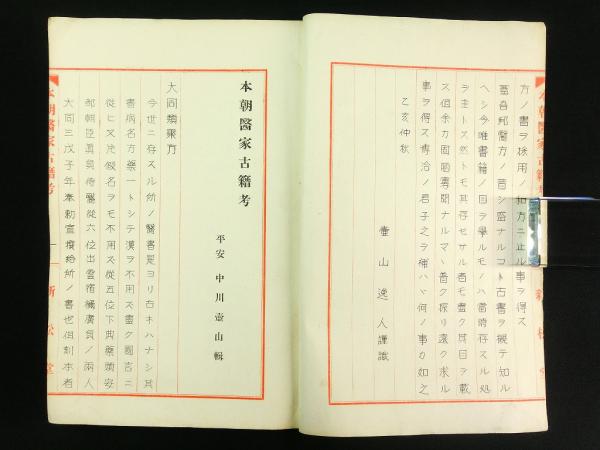 方ノ書ヲ採用ノ和方ニ止ル事ヲ得ス
蓋吾邦醫方ノ昔シ盛ナルコト古書ヲ觀テ知ル
ヘシ今唯書籍ノ目ヲ擧ルモノハ當時存スル処
ヲ主トス然トモ其存セサル者モ盡ク其目ヲ載
ス但余カ固陋寡聞ナルマヽ普ク探リ遠ク求ル
事ヲ得ス博洽ノ君子之ヲ補ハヽ何ノ事カ如之
乙亥仲秋
壷山逸人謹識
本朝醫家古籍考
本朝醫家古籍考
平安 中川壷山輯
大同類聚方
今世ニ存スル所ノ醫書是ヨリ古キハナシ其
書病名方藥一トシテ漢ヲ不用ス盡ク國言ニ
從ヒ又片假名ヲモ不用ス從五位下典藥頭安
部朝臣眞貞侍醫從六位出雲宿禰廣貞ノ兩人
大同三戊子年奉勅宣撰給所ノ書也但刻本者
本朝醫家古籍考
一
新松堂